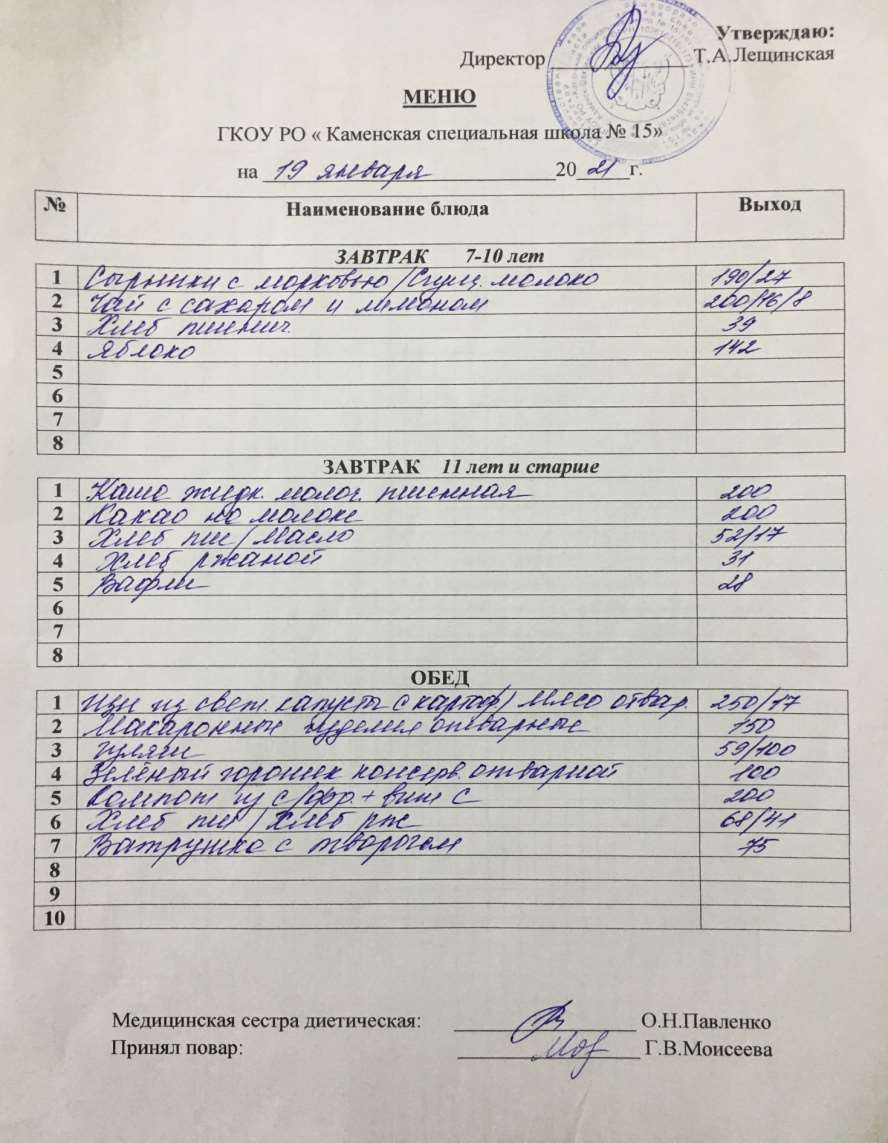 Утверждаю:
Директор Т.А.Лещинская
МЕНЮ
ГКОУ РО « Каменская специальная школа № 15»
на 19 января 2021 г.
№ Наименование блюда Выход
ЗАВТРАК 7-10 лет
1 Сырники с морковью /Сгущ. молоко 190/27
2 Чай с сахаром и лимоном 200/16/8
3 Хлеб пшенич. 39
4 Яблоко 142
5
6
7
8
ЗАВТРАК 11 лет и старше
1 Каша жидк. молоч. пшенная 200
2 Какао на молоке 200
3 Хлеб пш/Масло 52/17
4 Хлеб ржаной 31
5 Вафли 28
6
7
8
ОБЕД
1 Щи из свеж. капусты с картоф/ Мясо отвар. 250/17
2 Макаронные изделия отварные 150
3 гуляш 59/100
4 Зелёный горошек консерв. отварной 100
5 Компот из с/фр.+ вит С 200
6 Хлеб пш /Хлеб рж 68/41
7 Ватрушка с творогом 75
8
9
10
Медицинская сестра диетическая: О.Н.Павленко
Принял повар: Г.В.Моисеева